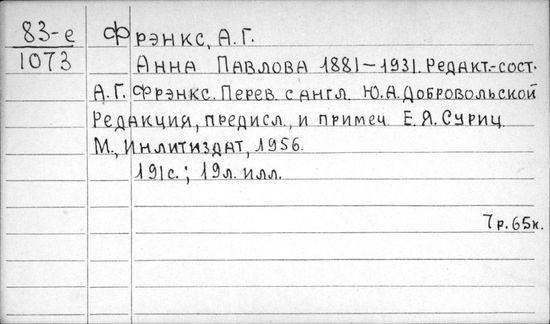 83-е Фрэнкс, А.Г.
1073
Анна Павлова 1881-1931. Редакт.-сост.
А.Г. Фрэнкс. Перев. с англ. Ю.А. Добровольской
Редакция, предисл., и примеч. Е.Я. Суриц.
М., Инлитиздат, 1956.
191с.; 19л. илл.
7р. 65к.